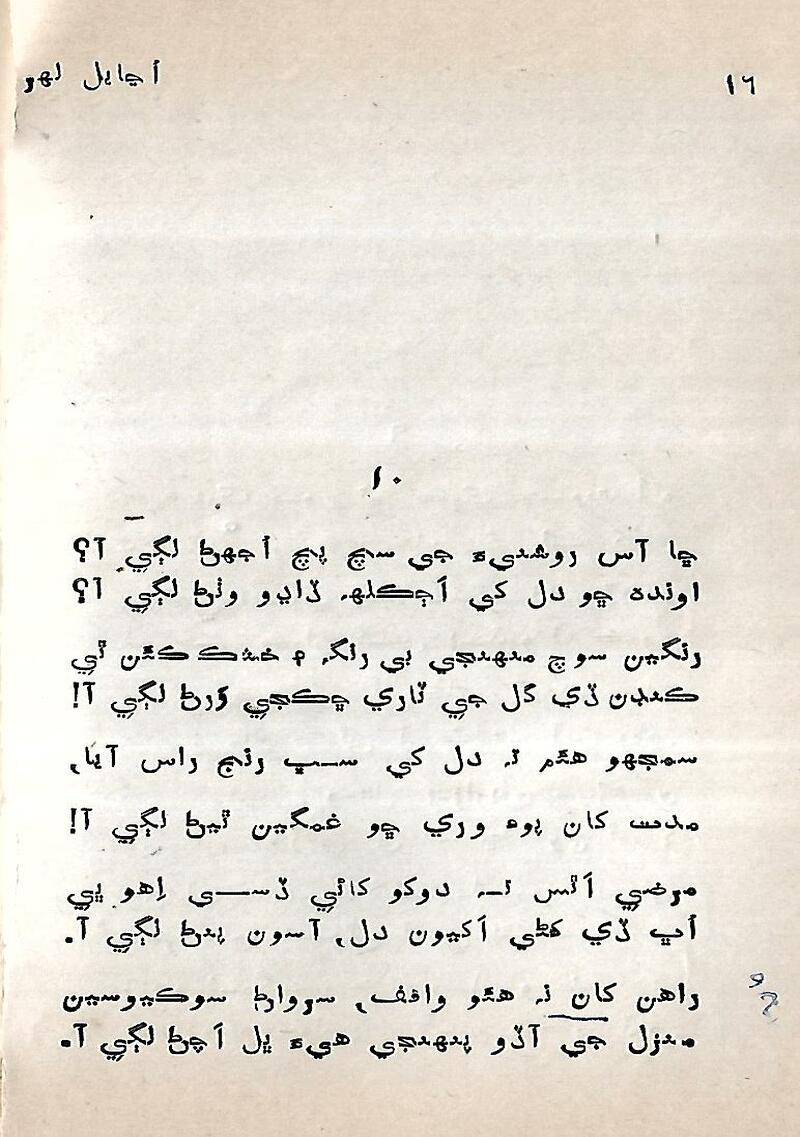 ١٦
اڃايل لهر
١٠
ڇا آس روشنيءَ جي سچ پچ اُجهڻ لڳي آ؟
اونده ڇو دل کي اَڄڪلھ ڏاڍو وڻڻ لڳي آ؟
رنگين سوچ منهنجي بي رنگ ۾ خشڪ ڪئن ٿي
ڪنڊن ڏي گل جي ٽاري ڇڪجي وَرڻ لڳي آ!
سمجهو هئم تہ دل کي سڀ رنج راس آيا،
مدت کان پوءِ وري ڇو غمگين ٿيڻ لڳي آ!
مرضي اَٿس تہ دوکو کائي ڏسي اِهو ڀي
اُڀ ڏي کڻي اَکيون دل، آسون پنڻ لڳي آ.
راهن کان نہ هئو واقف، سرواڻ سوڪيوسين
منزل جي آڏو پنهنجي هيءَ ڀل اَچڻ لڳي آ.